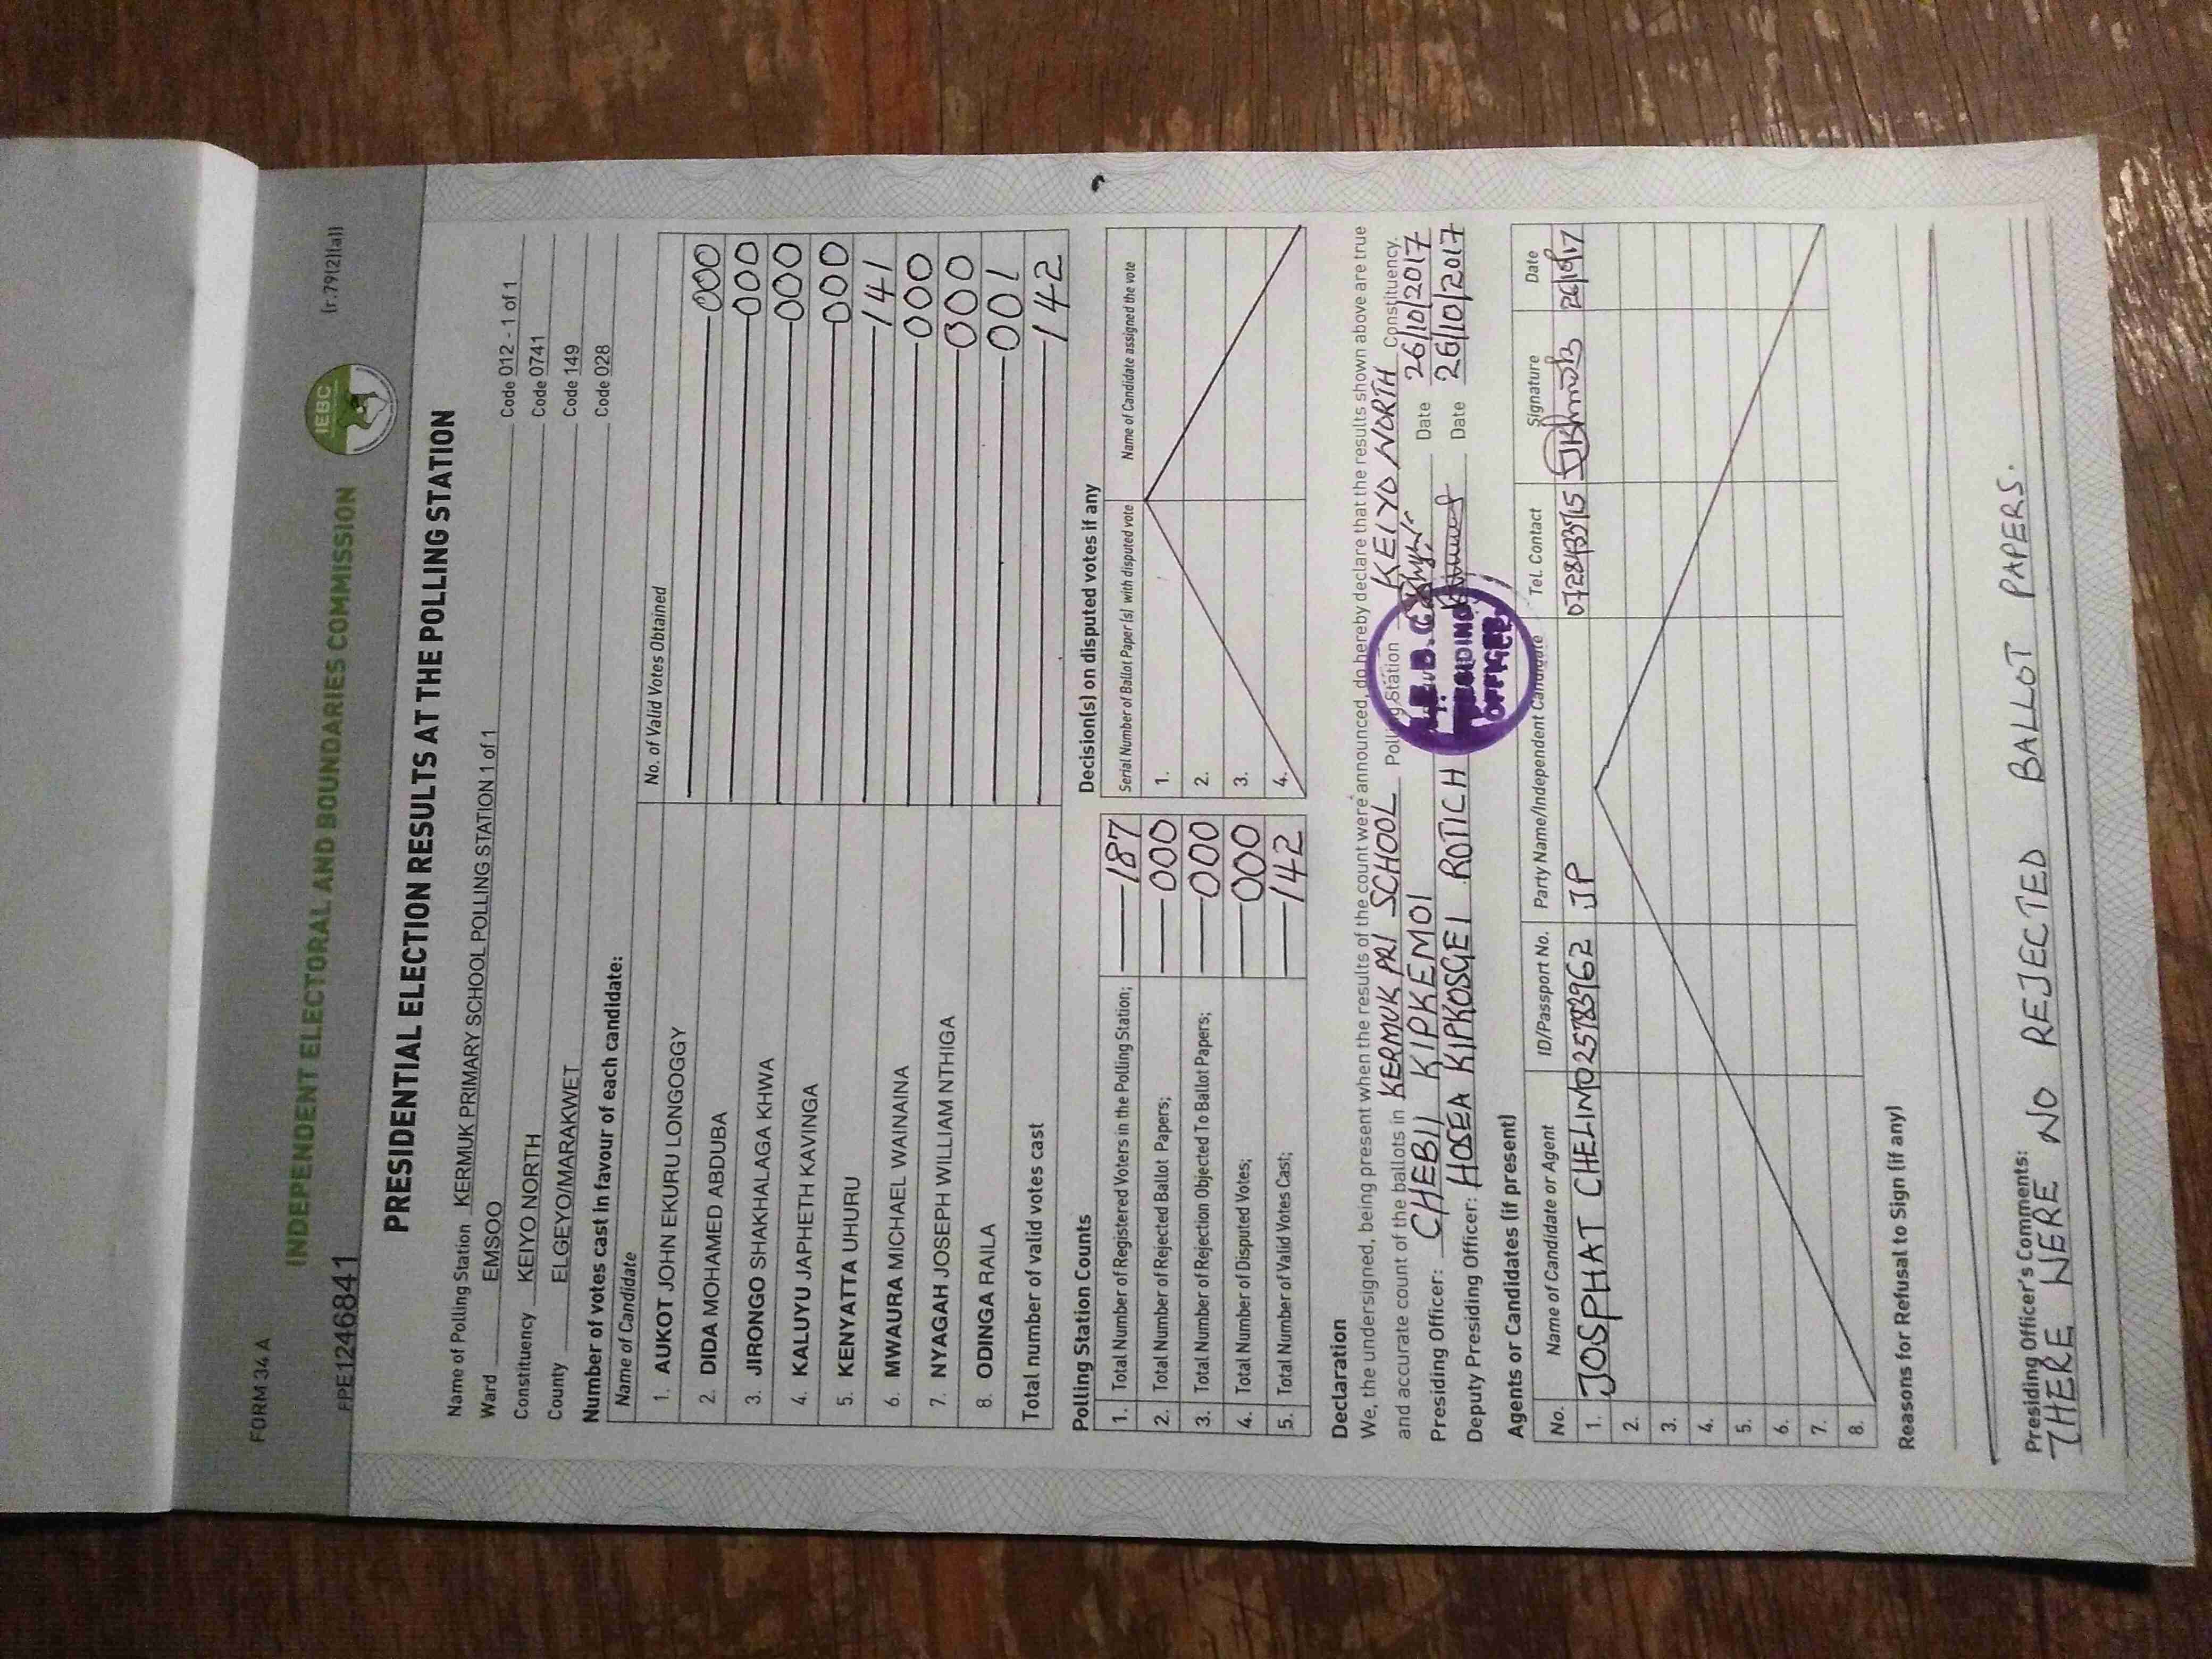 FORM 34 A
(r.79(2)(a))
INDEPENDENT ELECTORAL AND BOUNDARIES COMMISSION
IEBC
PPE1246841
PRESIDENTIAL ELECTION RESULTS AT THE POLLING STATION
Name of Polling Station KERMUK PRIMARY SCHOOL POLLING STATION 1 of 1 Code 012 - 1 of 1
Ward EMSOO Code 0741
Constituency KEIYO NORTH Code 149
County ELGEYO/MARAKWET Code 028
Number of votes cast in favour of each candidate:
Name of Candidate No. of Valid Votes Obtained
1. AUKOT JOHN EKURU LONGOGGY 000
2. DIDA MOHAMED ABDUBA 000
3. JIRONGO SHAKHALAGA KHWA 000
4. KALUYU JAPHETH KAVINGA 000
5. KENYATTA UHURU 141
6. MWAURA MICHAEL WAINAINA 000
7. NYAGAH JOSEPH WILLIAM NTHIGA 000
8. ODINGA RAILA 001
Total number of valid votes cast 142
Polling Station Counts
1. Total Number of Registered Voters in the Polling Station; 187
2. Total Number of Rejected Ballot Papers; 000
3. Total Number of Rejection Objected To Ballot Papers; 000
4. Total Number of Disputed Votes; 000
5. Total Number of Valid Votes Cast; 142
Decision(s) on disputed votes if any
Serial Number of Ballot Paper (s) with disputed vote Name of Candidate assigned the vote
1.
2.
3.
4.
Declaration
We, the undersigned, being present when the results of the count were announced, do hereby declare that the results shown above are true
and accurate count of the ballots in KERMUK PRI SCHOOL Polling Station KEIYO NORTH Constituency.
Presiding Officer: CHEBII KIPKEMOI Date 26/10/2017
Deputy Presiding Officer: HOSEA KIPKOSGEI ROTICH Date 26/10/2017
I.E.B.C
PRESIDING
OFFICER
Agents or Candidates (if present)
No. Name of Candidate or Agent ID/Passport No. Party Name/Independent Candidate Tel. Contact Signature Date
1. JOSPHAT CHELIMO 25783962 JP
2.
3.
4.
5.
6.
7.
8.
Reasons for Refusal to Sign (if any)
Presiding Officer's Comments:
THERE WERE NO REJECTED BALLOT PAPERS.